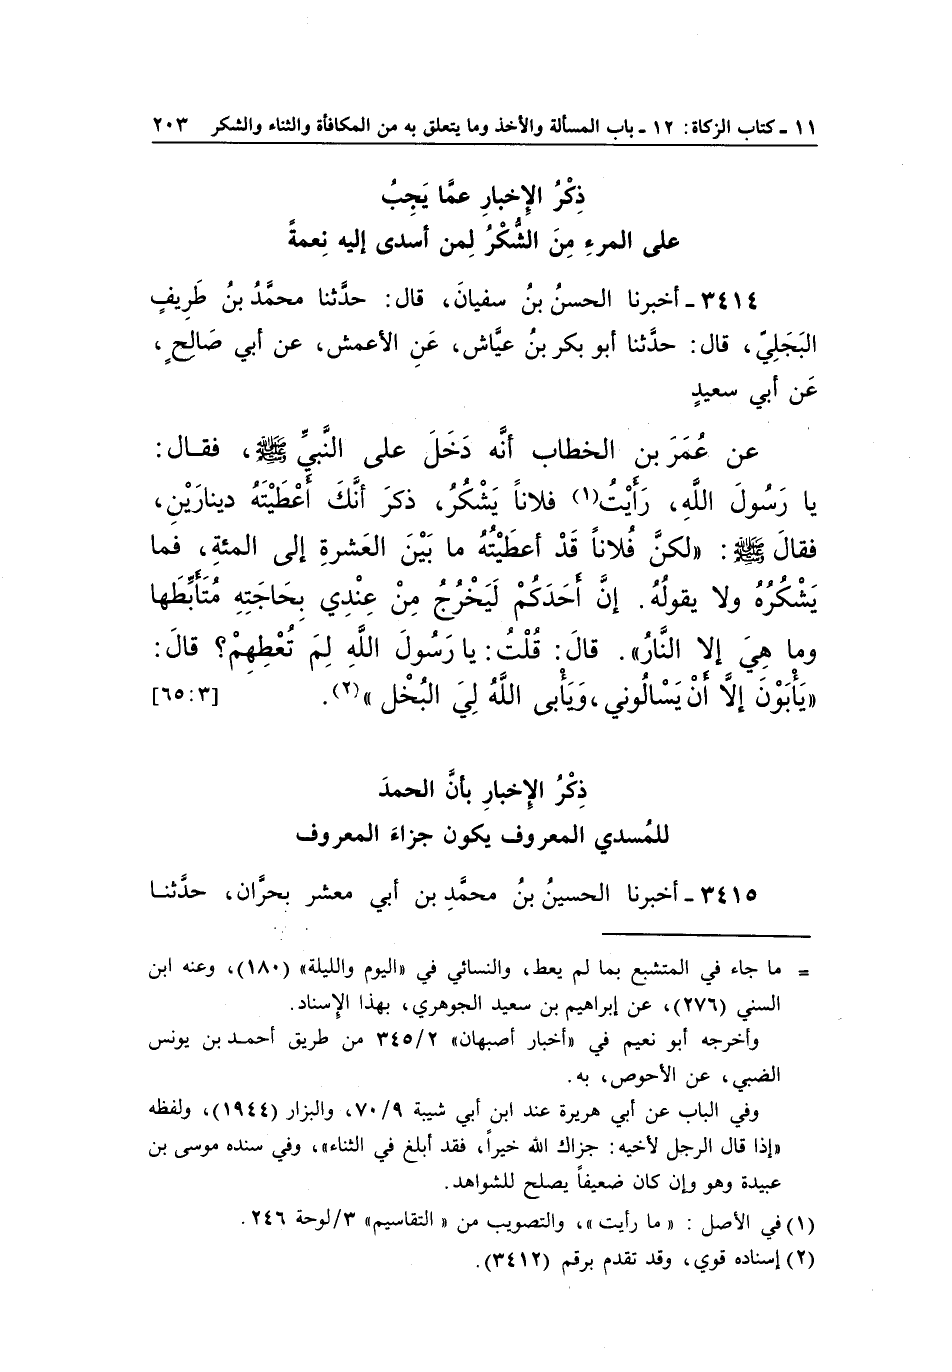 ١١ ـ كتاب الزكاة: ١٢ ـ باب المسألة والأخذ وما يتعلق به من المكافأة والثناء والشكر ٢٠٣
ذِكْرُ الإِخبارِ عمَّا يَجِبُ
على المرءِ مِنَ الشُّكْرُ لِمن أسدى إليه نِعمةً
٣٤١٤ ـ أخبرنا الحسنُ بنُ سفيانَ، قال: حدَّثنا محمَّدُ بنُ طَرِيفٍ
البَجَلِيّ، قال: حدَّثنا أبو بكر بنُ عيَّاش، عَنِ الأعمش، عن أبي صَالِحٍ،
عَن أبي سعيدٍ
عن عُمَرَ بن الخطاب أنَّه دَخَلَ على النَّبيِّ ﷺ، فقال:
يا رَسُولَ اللَّهِ، رَأَيْتُ(١) فلاناً يَشْكُرُ، ذكرَ أنَّكَ أَعْطَيْتَهُ دينارَيْنِ،
فقالَ ﷺ: «لكنَّ فُلاناً قَدْ أعطَيْتُهُ ما بَيْنَ العَشرةِ إلى المئةِ، فما
يَشْكُرُهُ ولا يقولُهُ. إنَّ أَحَدَكُمْ لَيَخْرُجُ مِنْ عِنْدِي بِحَاجَتِهِ مُتَأَبِّطَها
وما هِيَ إلا النَّارُ». قالَ: قُلْتُ: يا رَسُولَ اللَّهِ لِمَ تُعْطِهِمْ؟ قالَ:
«يَأْبَوْنَ إلَّا أَنْ يَسْألُوني، وَيَأْبى اللَّهُ لِيَ البُخْل»(٢). [٦٥:٣]
ذِكْرُ الإِخبارِ بأنَّ الحمدَ
للمُسدي المعروف يكون جزاءَ المعروف
٣٤١٥ ـ أخبرنا الحسينُ بنُ محمَّدِ بن أبي معشر بحرَّان، حدَّثنا
= ما جاء في المتشبع بما لم يعط، والنسائي في «اليوم والليلة» (١٨٠)، وعنه ابن
السني (٢٧٦)، عن إبراهيم بن سعيد الجوهري، بهذا الإسناد.
وأخرجه أبو نعيم في «أخبار أصبهان» ٣٤٥/٢ من طريق أحمد بن يونس
الضبي، عن الأحوص، به.
وفي الباب عن أبي هريرة عند ابن أبي شيبة ٧٠/٩، والبزار (١٩٤٤)، ولفظه
«إذا قال الرجل لأخيه: جزاك الله خيراً، فقد أبلغ في الثناء»، وفي سنده موسى بن
عبيدة وهو وإن كان ضعيفاً يصلح للشواهد.
(١) في الأصل : « ما رأيت »، والتصويب من « التقاسيم» ٣/لوحة ٢٤٦.
(٢) إسناده قوي، وقد تقدم برقم (٣٤١٢).